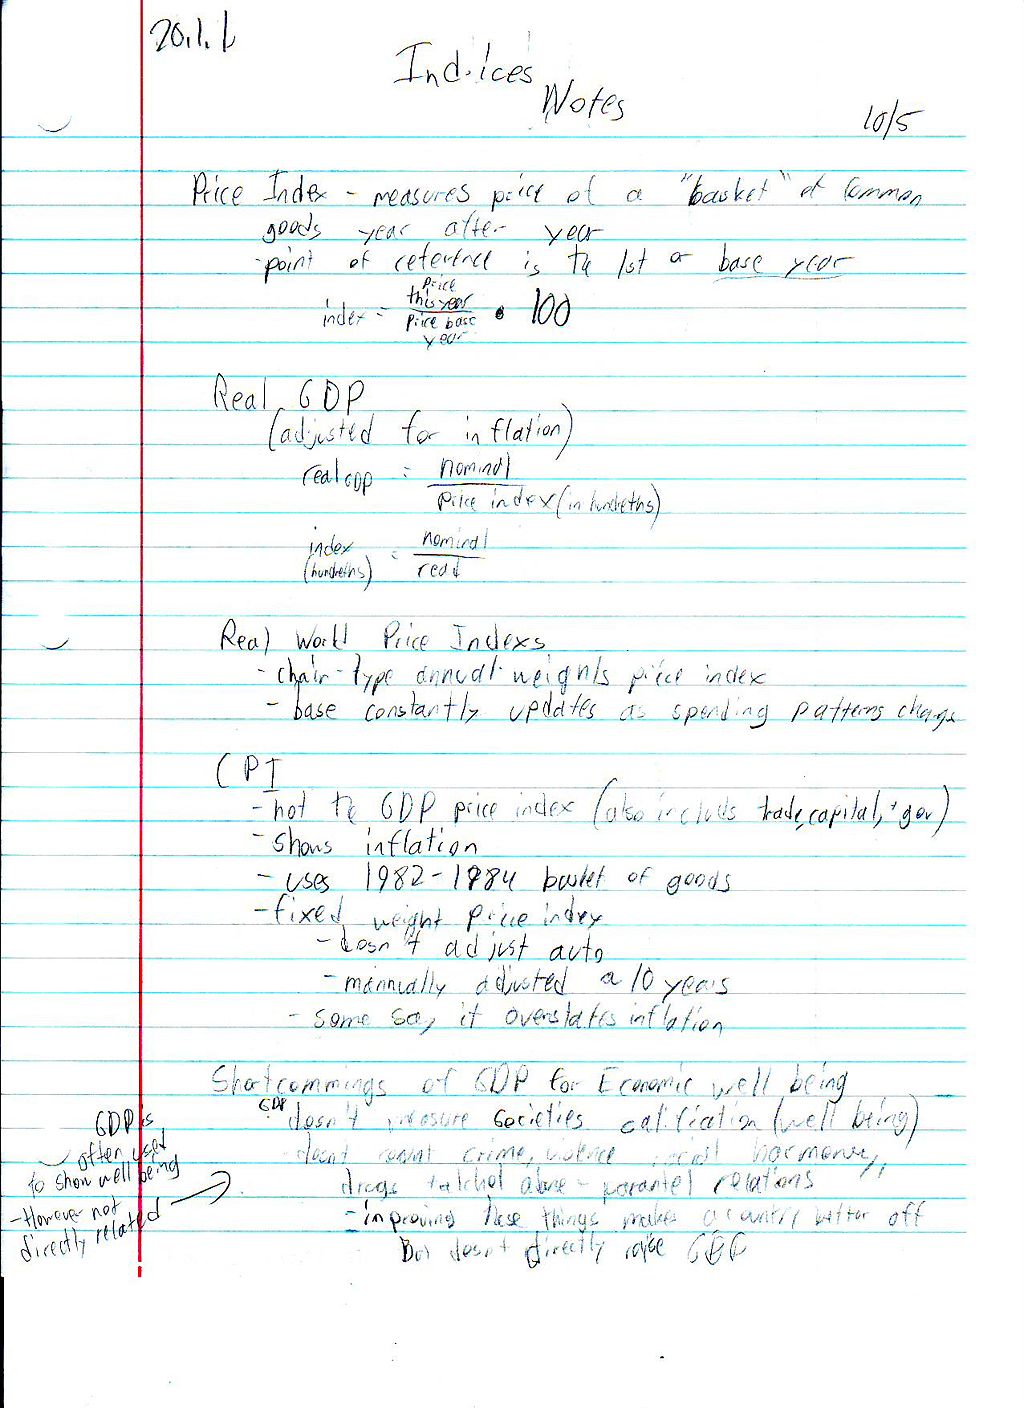 20.1.1
Indices
Notes
10/5
Price Index - measures price of a "basket" of common
goods year after year
-point of reference is the 1st or base year
index = price this year / price base year • 100
Real GDP
(adjusted for inflation)
real GDP = nominal / price index (in hundreths)
index (hundreths) = nominal / real
Real World Price Indexs
- chain-type annual-weights price index
- base constantly updates as spending patterns change
CPI
- not the GDP price index (also includes trade, capital, + gov)
- shows inflation
- uses 1982-1984 basket of goods
- fixed weight price index
- dosn't adjust auto
- mannually adjusted @ 10 years
- some say it overstates inflation
Shortcommings of GDP for Economic well being
GDP doesn't measure societies (well being)
- doesn't crime, violence, social harmoney,
drugs + alchol abuse - relations
- improving these things makes a country better off
But doesn't directly raise
GDP is
often used
to show well being
- However not
directly related